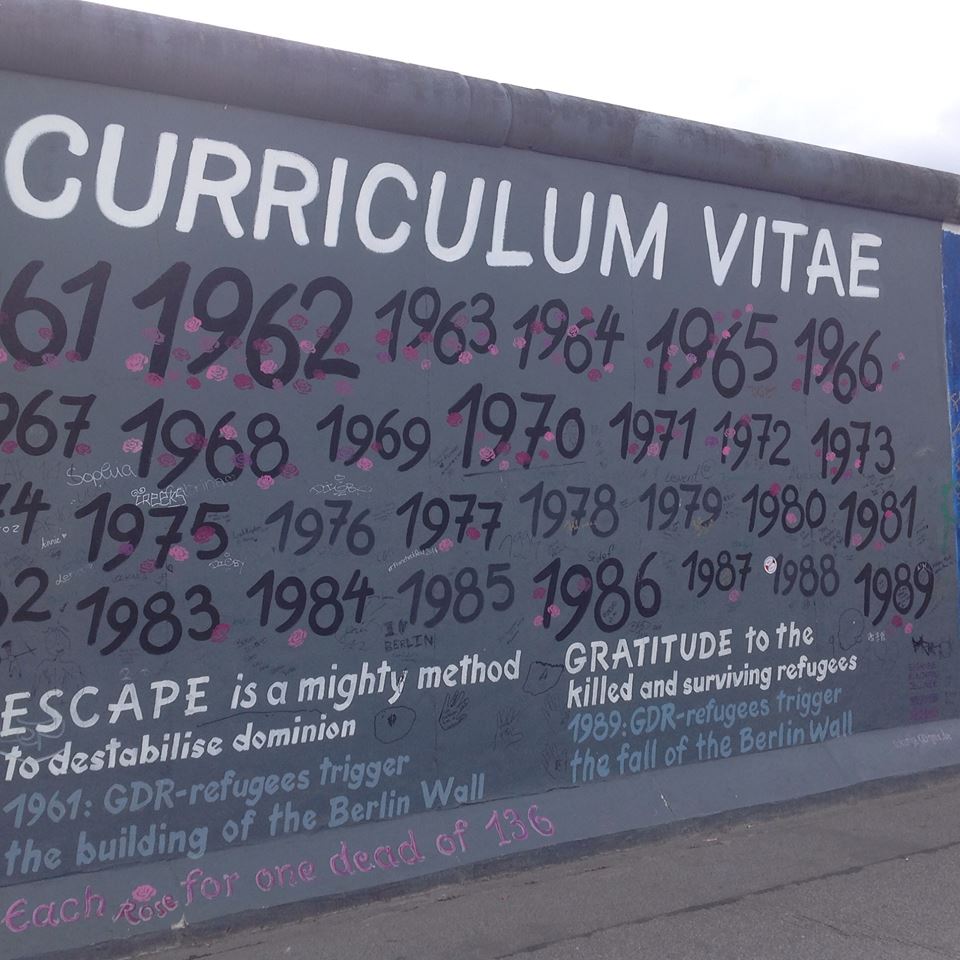 CURRICULUM VITAE
61 1962 1963 1964 1965 1966
967 1968 1969 1970 1971 1972 1973
Sophia
GREEKS
74 1975 1976 1977 1978 1979 1980 1981
Annie
2 1983 1984 1985 1986 1987 1988 1989
BERLIN
ESCAPE is a mighty method
to destabilise dominion
1961: GDR-refugees trigger
the building of the Berlin Wall
Each Rose for one dead of 136
GRATITUDE to the
killed and surviving refugees
1989: GDR-refugees trigger
the fall of the Berlin Wall